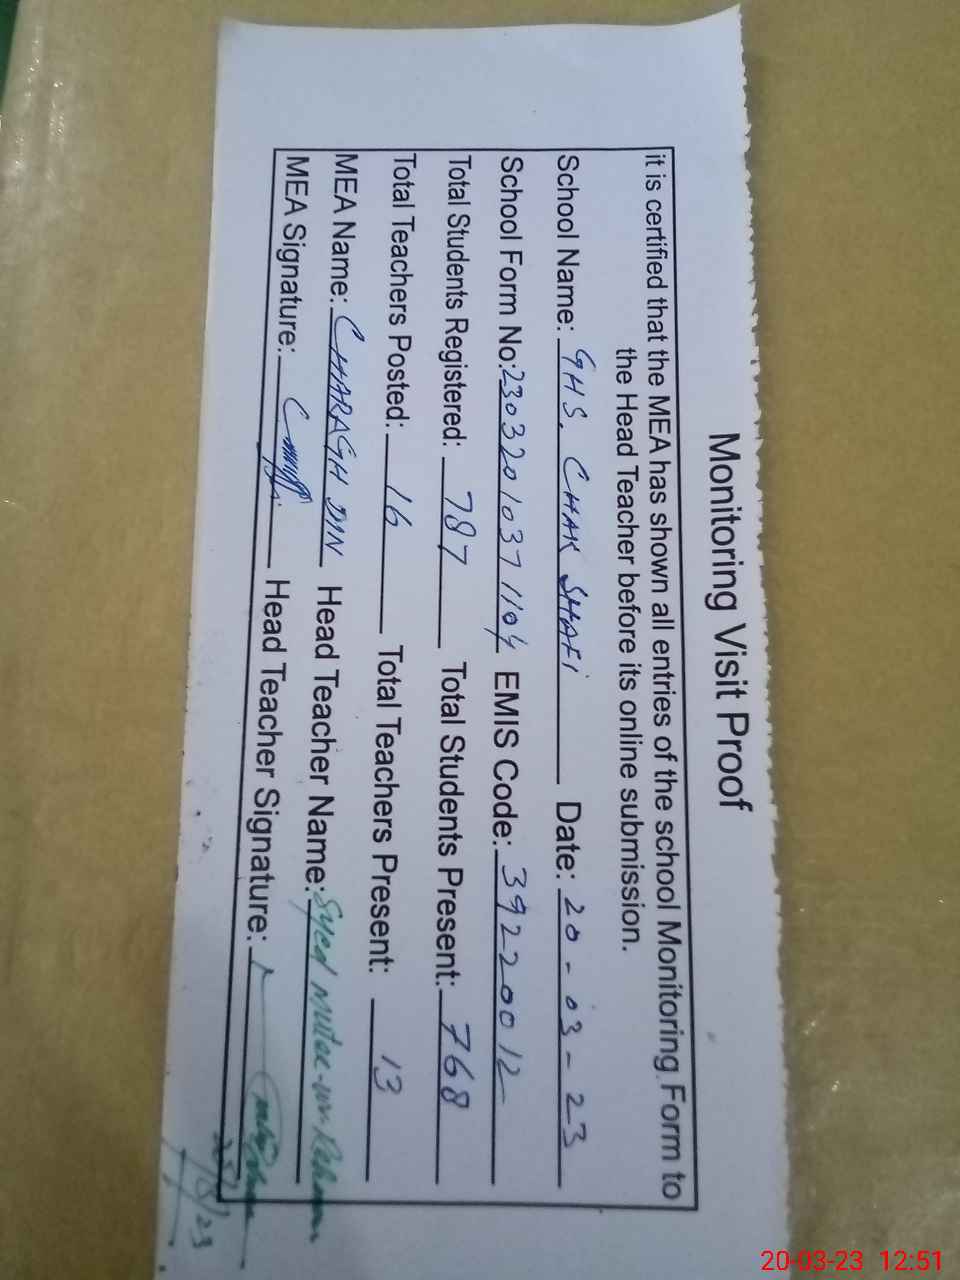 Monitoring Visit Proof
it is certified that the MEA has shown all entries of the school Monitoring Form to
the Head Teacher before its online submission.
School Name: GHS. CHAK SHAFI Date: 20-03-23
School Form No: 2303201037 1104 EMIS Code: 39220012
Total Students Registered: 787 Total Students Present: 768
Total Teachers Posted: 16 Total Teachers Present: 13
MEA Name: CHARAGH DIN Head Teacher Name: Syed
MEA Signature: Head Teacher Signature:
20-03-23 12:51